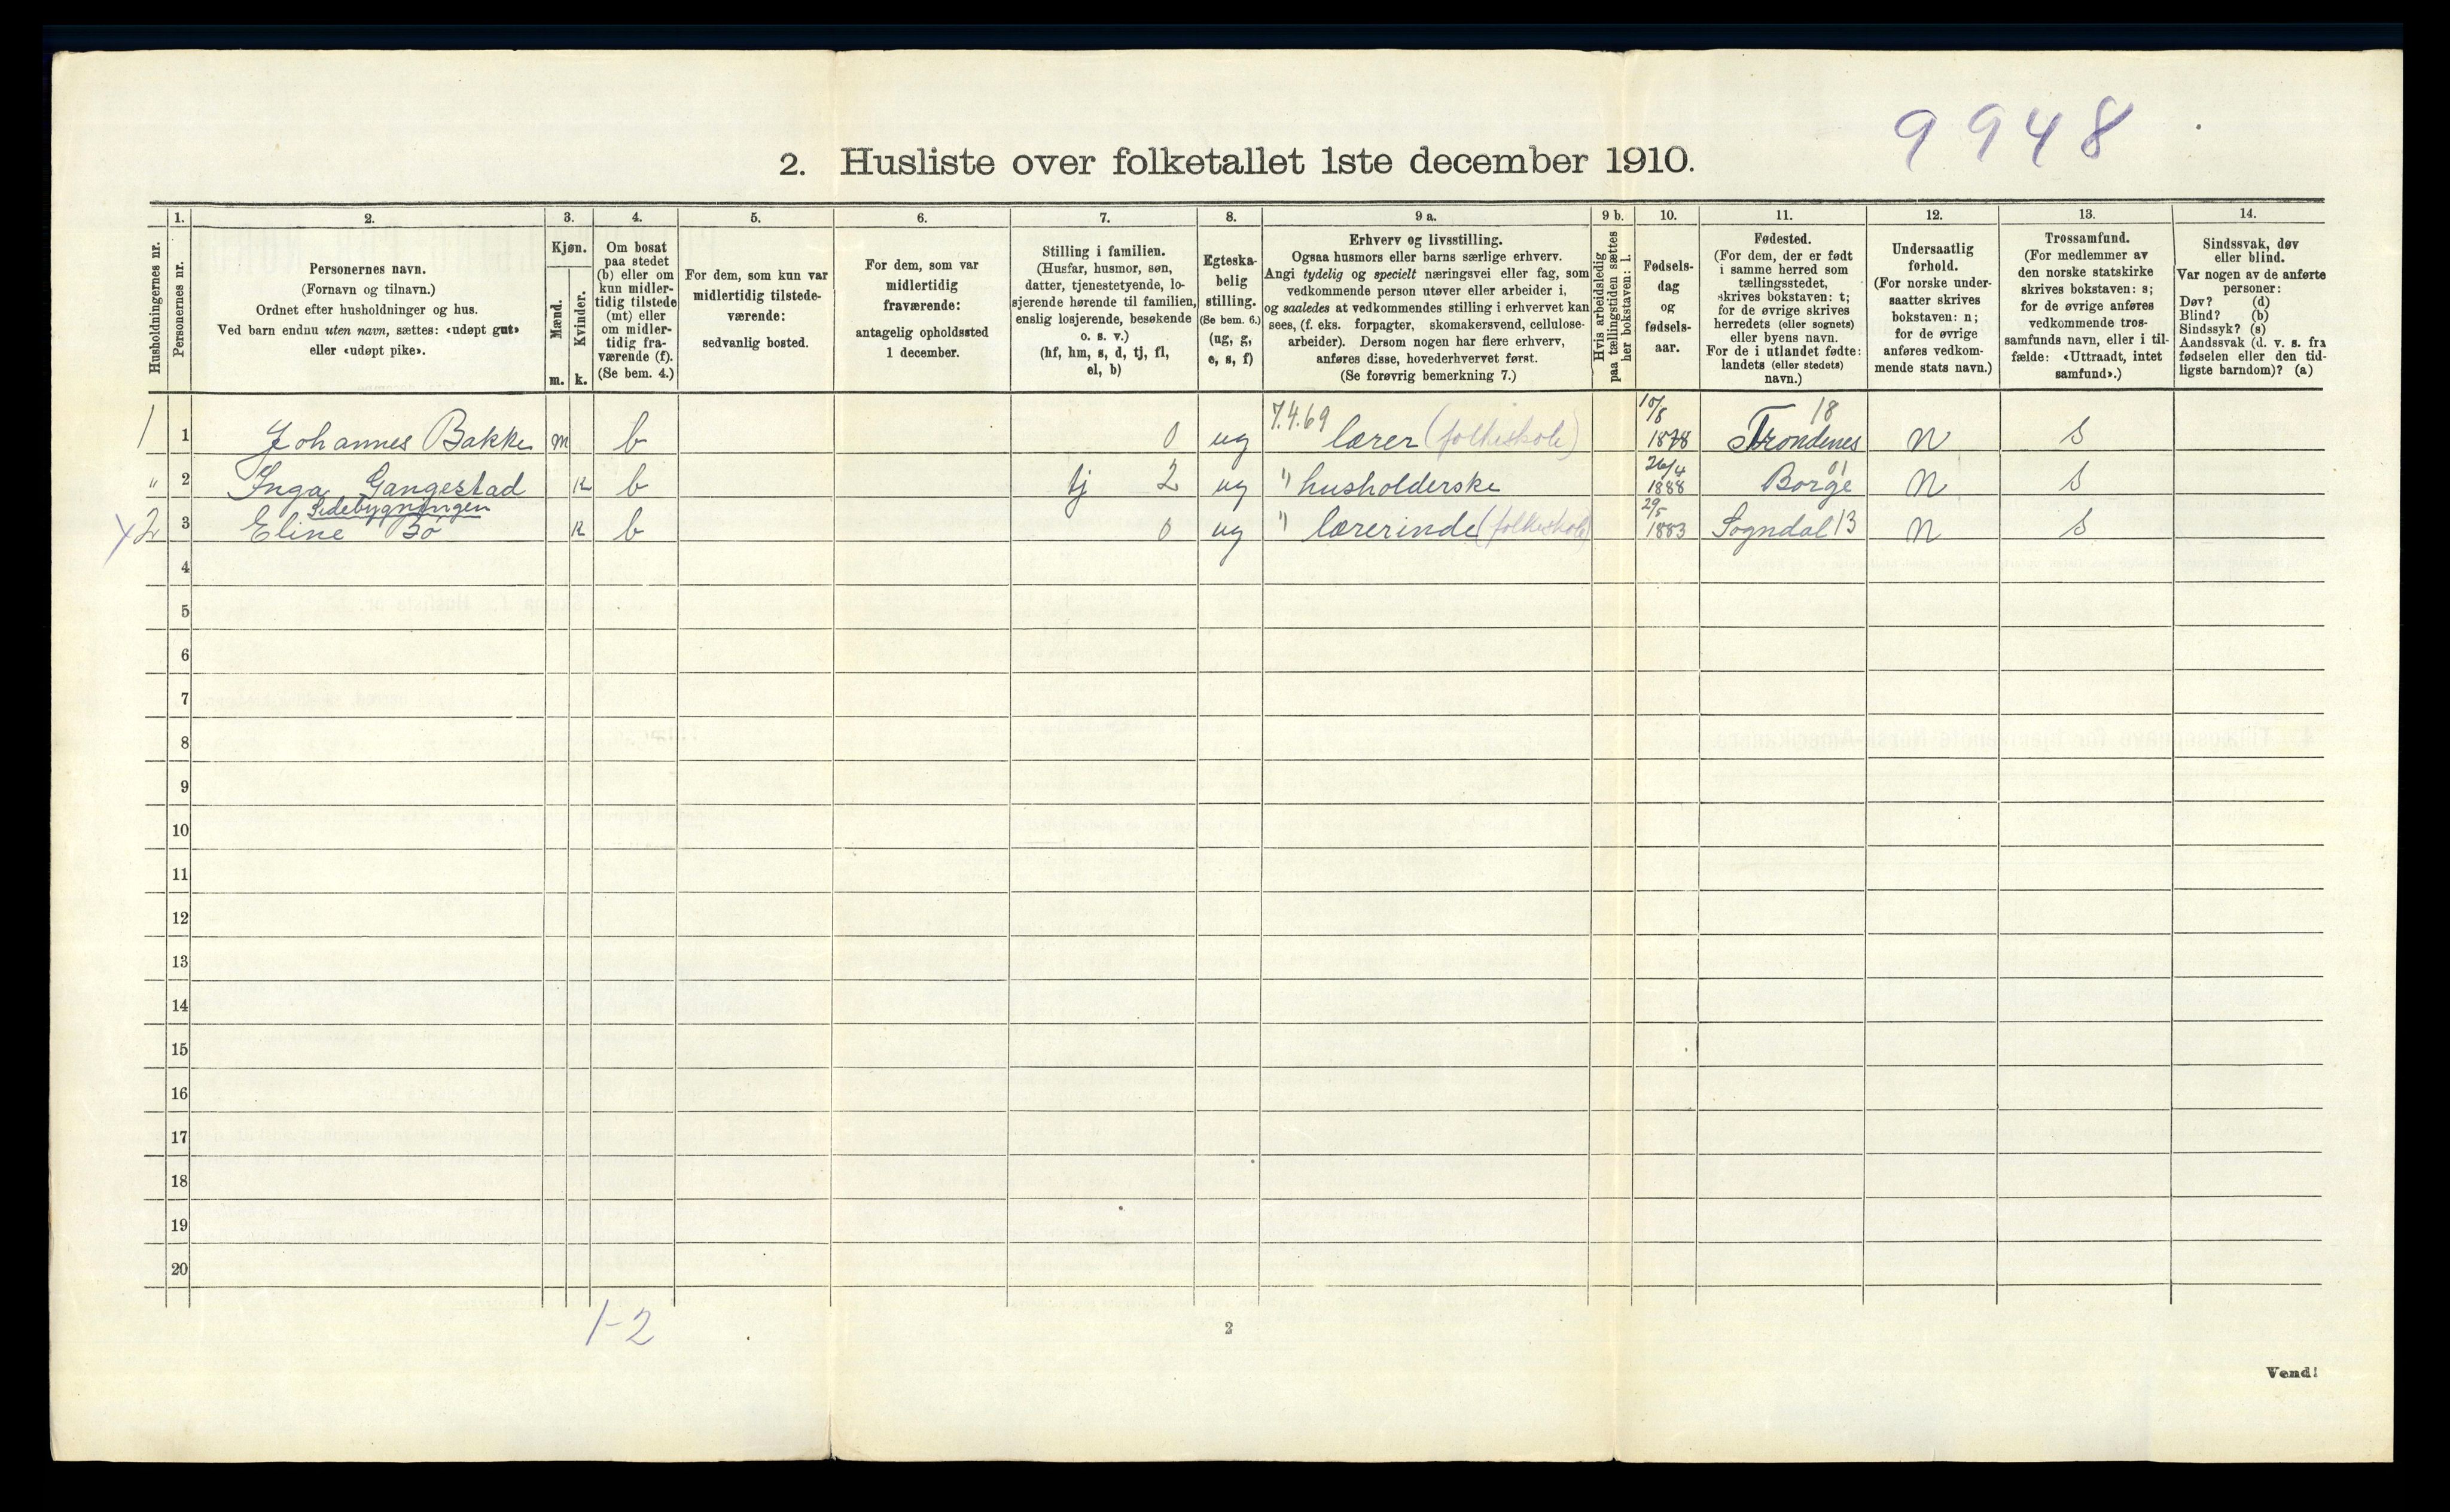 9948
2. Husliste over folketallet 1ste december 1910.
Husholdningernes nr.
1.
Personernes nr.
2.
Personernes navn.
(Fornavn og tilnavn.)
Ordnet efter husholdninger og hus.
Ved barn endnu uten navn, sættes: «udøpt gut»
eller «udøpt pike».
3.
Kjøn.
Mænd.
Kvinder.
m. k.
4.
Om bosat
paa stedet
(b) eller om
kun midler-
tidig tilstede
(mt) eller
om midler-
tidig fra-
værende (f).
(Se bem. 4.)
5.
For dem, som kun var
midlertidig tilstede-
værende:
sedvanlig bosted.
6.
For dem, som var
midlertidig
fraværende:
antagelig opholdssted
1 december.
7.
Stilling i familien.
(Husfar, husmor, søn,
datter, tjenestetyende, lo-
sjerende hørende til familien,
enslig losjerende, besøkende
o. s. v.)
(hf, hm, s, d, tj, fl,
el, b)
8.
Egteska-
belig
stilling.
(Se bem. 6.)
(ug, g,
e, s, f)
9 a.
Erhverv og livsstilling.
Ogsaa husmors eller barns særlige erhverv.
Angi tydelig og specielt næringsvei eller fag, som
vedkommende person utøver eller arbeider i,
og saaledes at vedkommendes stilling i erhvervet kan
sees, (f. eks. forpagter, skomakersvend, cellulose-
arbeider). Dersom nogen har flere erhverv,
anføres disse, hovederhvervet først.
(Se forøvrig bemerkning 7.)
9 b.
Hvis arbeidsledig
paa tællingstiden sættes
her bokstaven: l.
10.
Fødsels-
dag
og
fødsels-
aar.
11.
Fødested.
(For dem, der er født
i samme herred som
tællingsstedet,
skrives bokstaven: t;
for de øvrige skrives
herredets (eller sognets)
eller byens navn.
For de i utlandet fødte:
landets (eller stedets)
navn.)
12.
Undersaatlig
forhold.
(For norske under-
saatter skrives
bokstaven: n;
for de øvrige
anføres vedkom-
mende stats navn.)
13.
Trossamfund.
(For medlemmer av
den norske statskirke
skrives bokstaven: s;
for de øvrige anføres
vedkommende tros-
samfunds navn, eller i til-
fælde: «Uttraadt, intet
samfund».)
14.
Sindssvak, døv
eller blind.
Var nogen av de anførte
personer:
Døv? (d)
Blind? (b)
Sindssyk? (s)
Aandssvak (d. v. s. fra
fødselen eller den tid-
ligste barndom)? (a)
1 1 Johannes Bakke m b 0 ug 7.4.69 lærer (folkeskole) 10/8 1878 Trondenes 18 n s
" 2 Inga Gangestad k b tj 2 ug " husholderske 26/4 1888 Borge 01 n s
Sidebygningen
x2 3 Eline Bø k b 0 ug " lærerinde (folkeskole) 29/5 1883 Sogndal 13 n s
4
5
6
7
8
9
10
11
12
13
14
15
16
17
18
19
20
1-2
2
Vend!